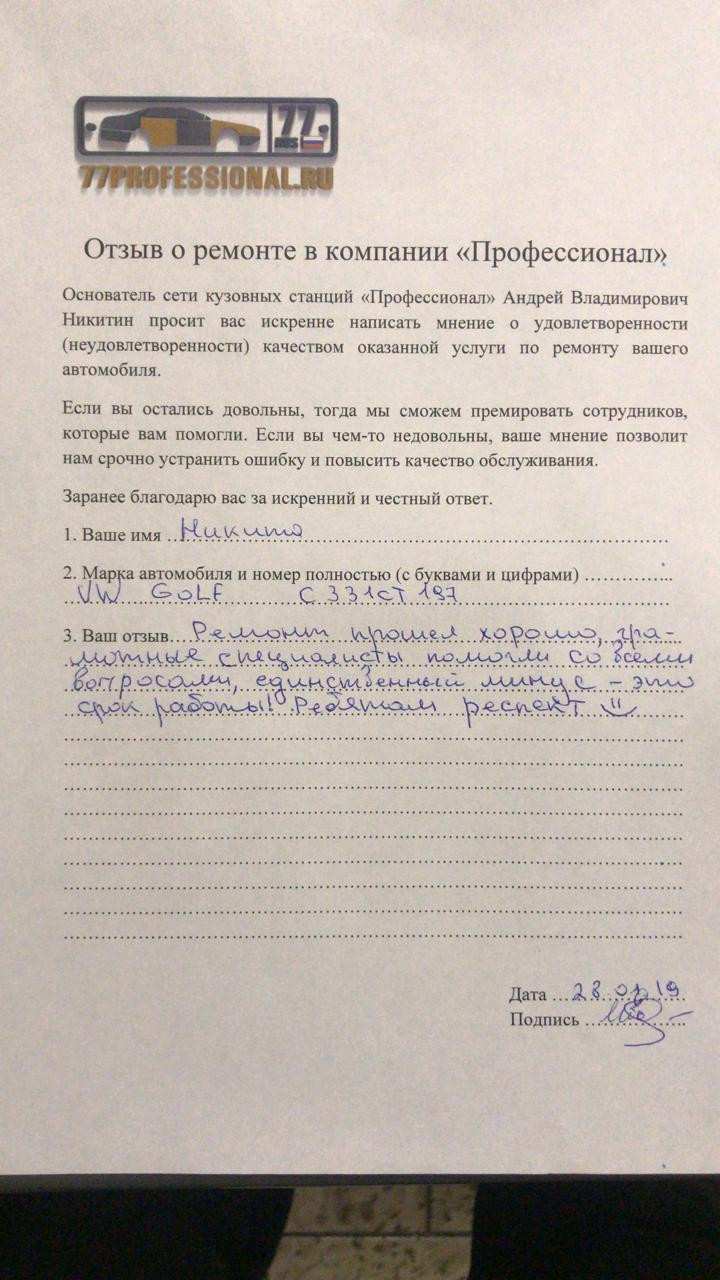 77
RUS
77PROFESSIONAL.RU
Отзыв о ремонте в компании «Профессионал»
Основатель сети кузовных станций «Профессионал» Андрей Владимирович
Никитин просит вас искренне написать мнение о удовлетворенности
(неудовлетворенности) качеством оказанной услуги по ремонту вашего
автомобиля.
Если вы остались довольны, тогда мы сможем премировать сотрудников,
которые вам помогли. Если вы чем-то недовольны, ваше мнение позволит
нам срочно устранить ошибку и повысить качество обслуживания.
Заранее благодарю вас за искренний и честный ответ.
1. Ваше имя Никита
2. Марка автомобиля и номер полностью (с буквами и цифрами)
VW GOLF С 331 СТ 197
3. Ваш отзыв Ремонт прошел хорошо, гра-
мотные специалисты помогли со всеми
вопросами, единственный минус – это
срок работы! Ребятам респект
Дата 28.01.19
Подпись